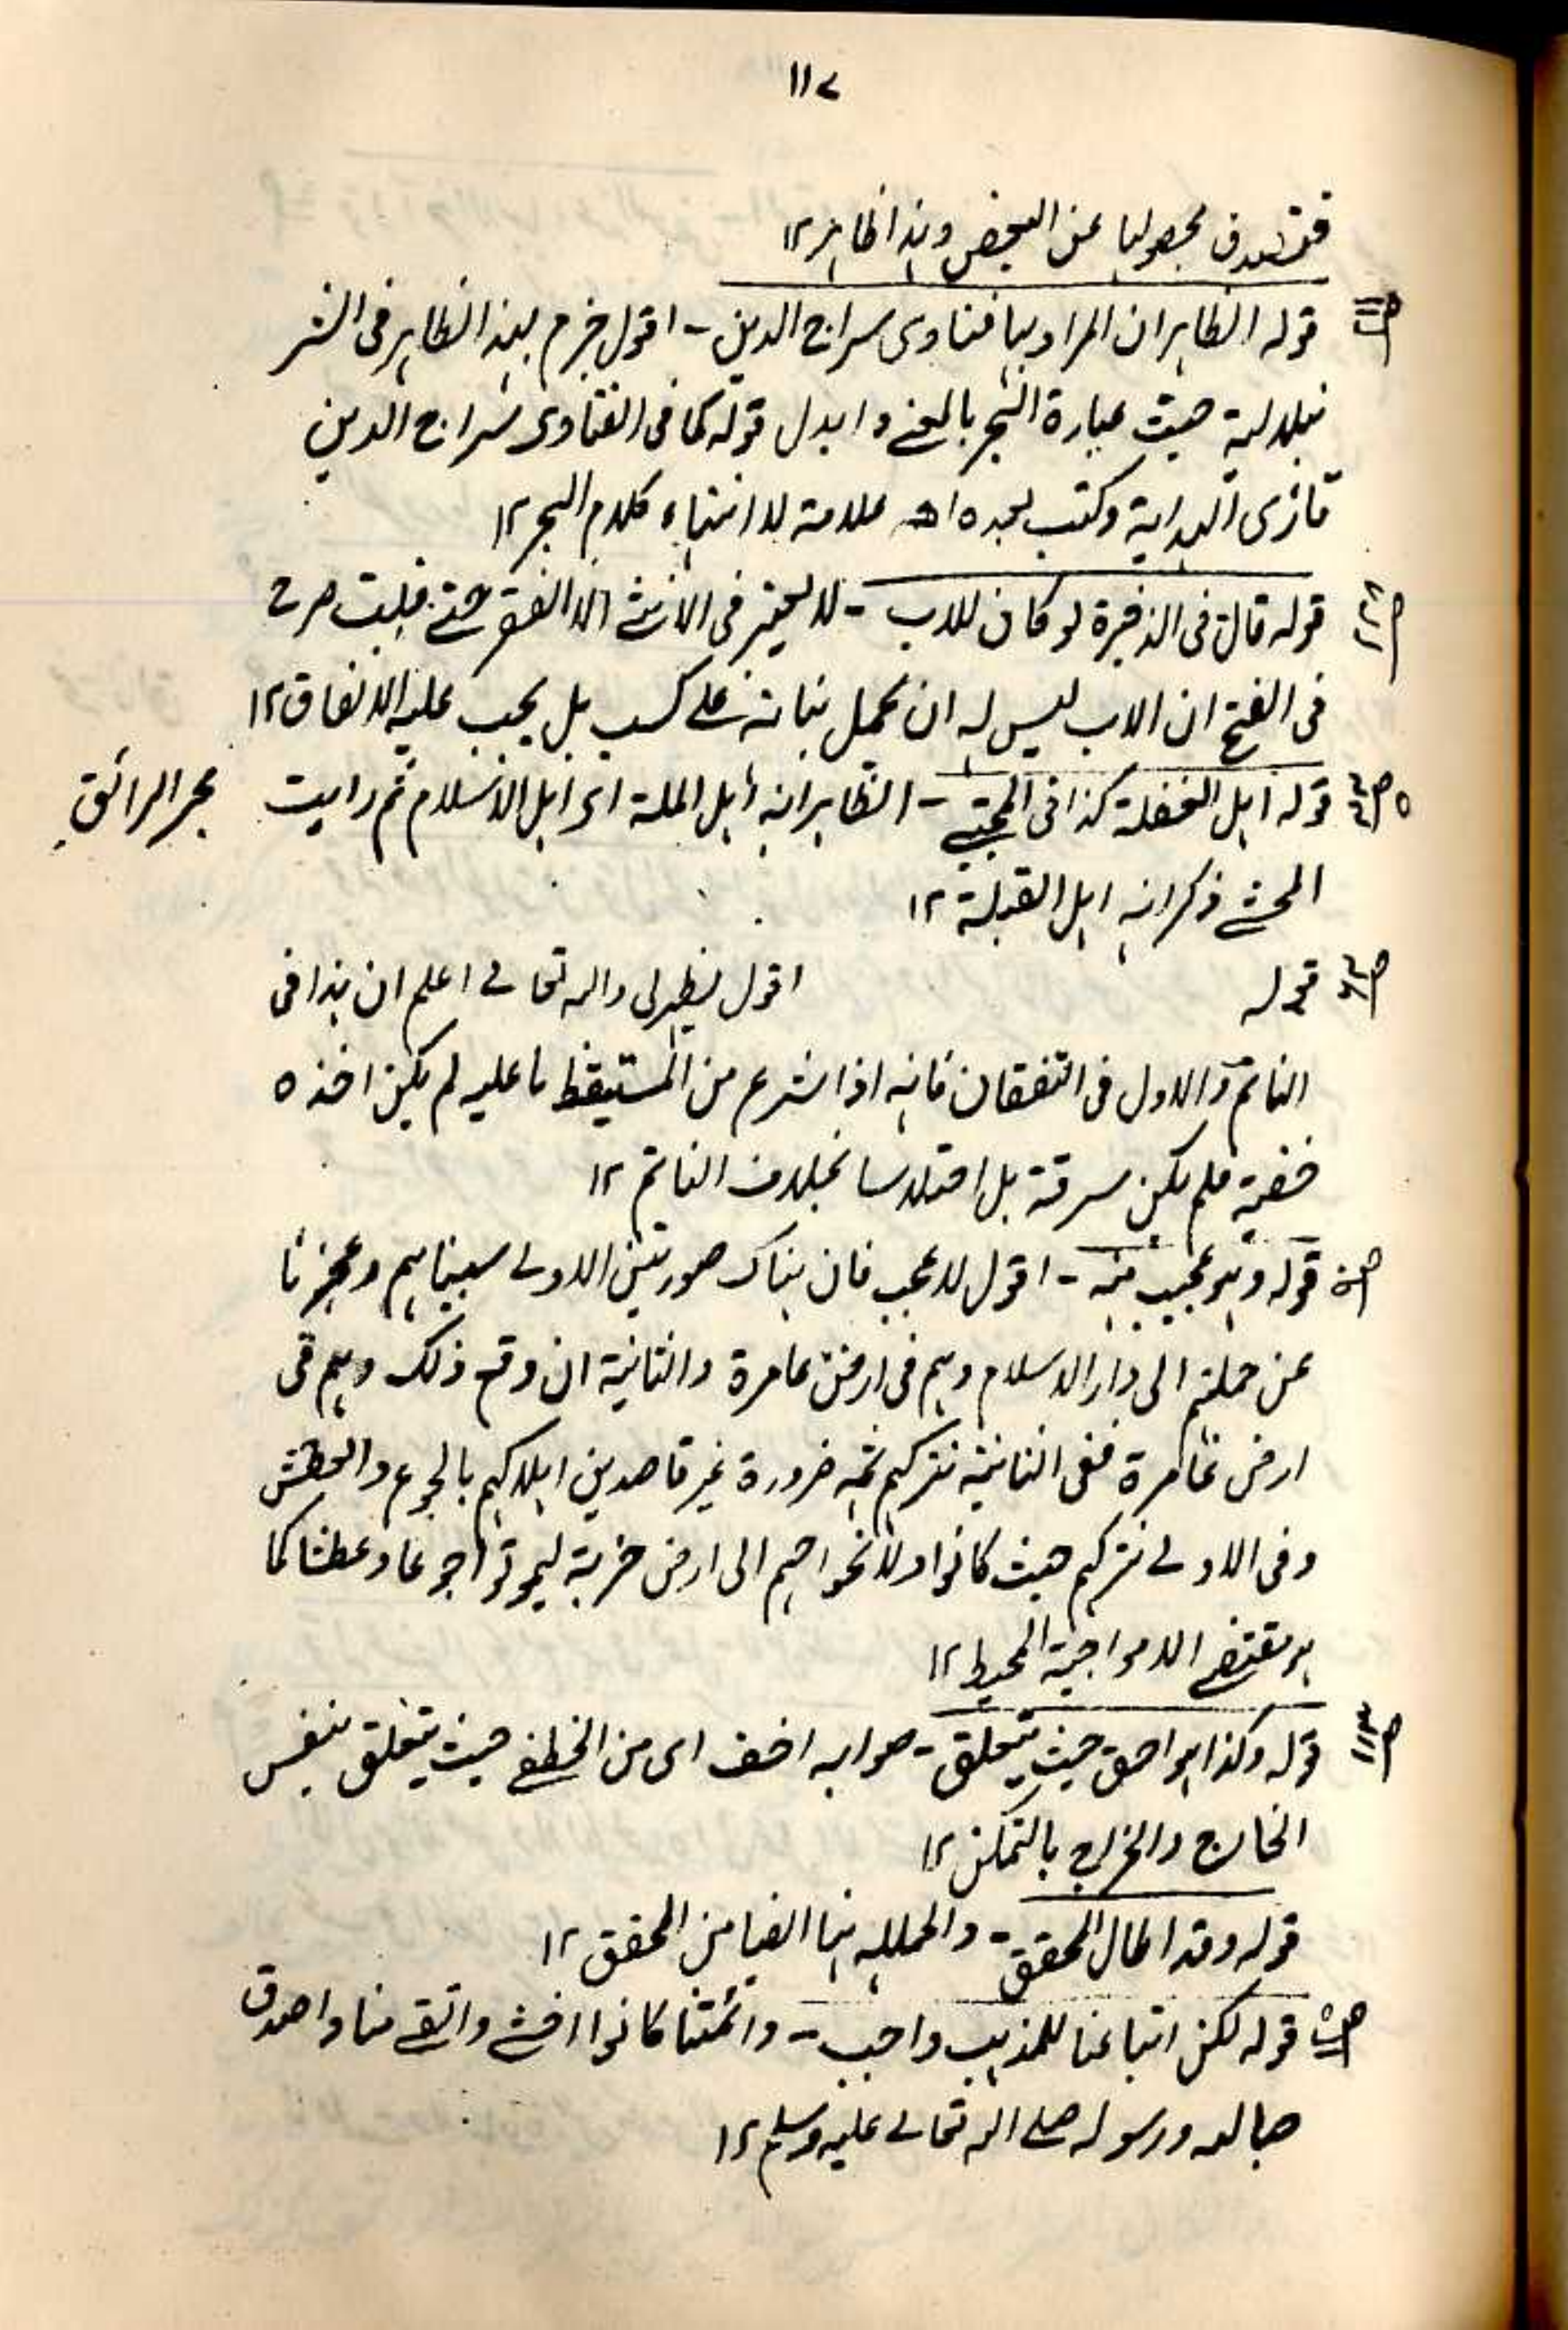 ١١٧
فتصدق بحصولها عن البعض وهذا ظاهر ١٢
قوله الظاهر ان المراد بها فتاوى سراج الدين - اقول جزم بهذا الظاهر فى الشر
نبلالية حيث عبارة البحر بالمعنى وابدل قوله كما فى الفتاوى سراج الدين
قارى الهداية وكتب بعده اھ علامة لانتهاء كلام البحر ١٢
قوله قال فى الذخيرة لو كان للاب - لا يعتبر فى الانثى الا الفقر حتى صرح
فى الفتح ان الاب ليس له ان يحمل بناته على كسب بل يجب عليه الانفاق ١٢
قوله اهل الغفلة كذا فى المجتبى - الظاهر انه اهل الملة اى اهل الاسلام ثم رايت
بحر الرائق
المحشى ذكر انه اهل القبلة ١٢
قوله اقول يظهر لى والله تعالى اعلم ان هذا فى
النائم والاول فى اليقظان فانه اذا شرع من المستيقظ ما عليه لم يكن اخذه
خفية فلم يكن سرقة بل اختلاسا بخلاف النائم ١٢
قوله وهو عجيب منه - اقول لا عجب فان هناك صورتين الاولى سبيناهم وعجزنا
عن حملهم الى دار الاسلام وهم فى ارض عامرة والثانية ان وقع ذلك وهم فى
ارض غامرة ففى الثانية نتركهم ثمه ضرورة غير قاصدين اهلاكهم بالجوع والعطش
وفى الاولى نتركهم حيث كانوا ولا نخرجهم الى ارض خربة ليموتوا جوعا وعطشا كما
هو مقتضى المحيط ١٢
قوله وكذا هو احق حيث يتعلق - صوابه اخف اى من حيث يتعلق بنفس
الخارج والخراج بالتمكن ١٢
قوله وقد اطال المحقق - والحمد لله ايضا من المحقق ١٢
قوله لكن اتباعنا للمذهب واجب - وائمتنا كانوا اخشى واتقى منا واصدق
حبا لله ورسوله صلى الله تعالى عليه وسلم ١٢